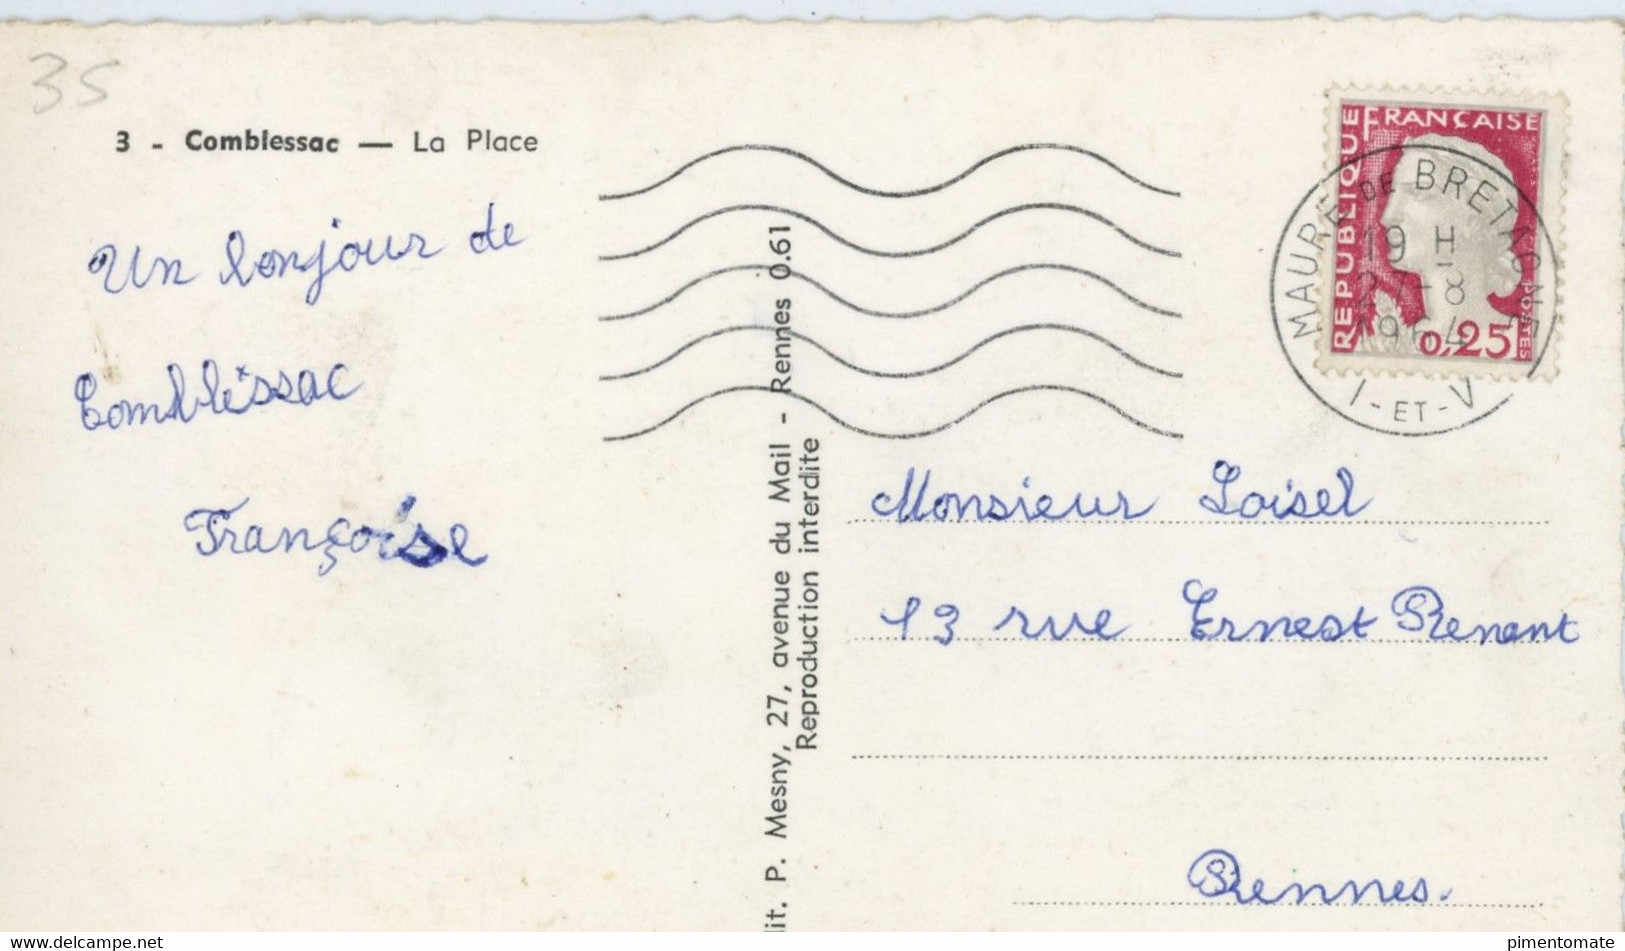 35
3 - Comblessac — La Place
Un bonjour de
Comblessac
Françoise
lit. P. Mesny, 27, avenue du Mail - Rennes 0.61
Reproduction interdite
RÉPUBLIQUE FRANÇAISE
POSTES
0,25
MAURE DE BRETAGNE
19 H
27-8
1964
I-ET-V
Monsieur Loisel
13 rue Ernest Renant
Rennes.
www.delcampe.net
pimentomate